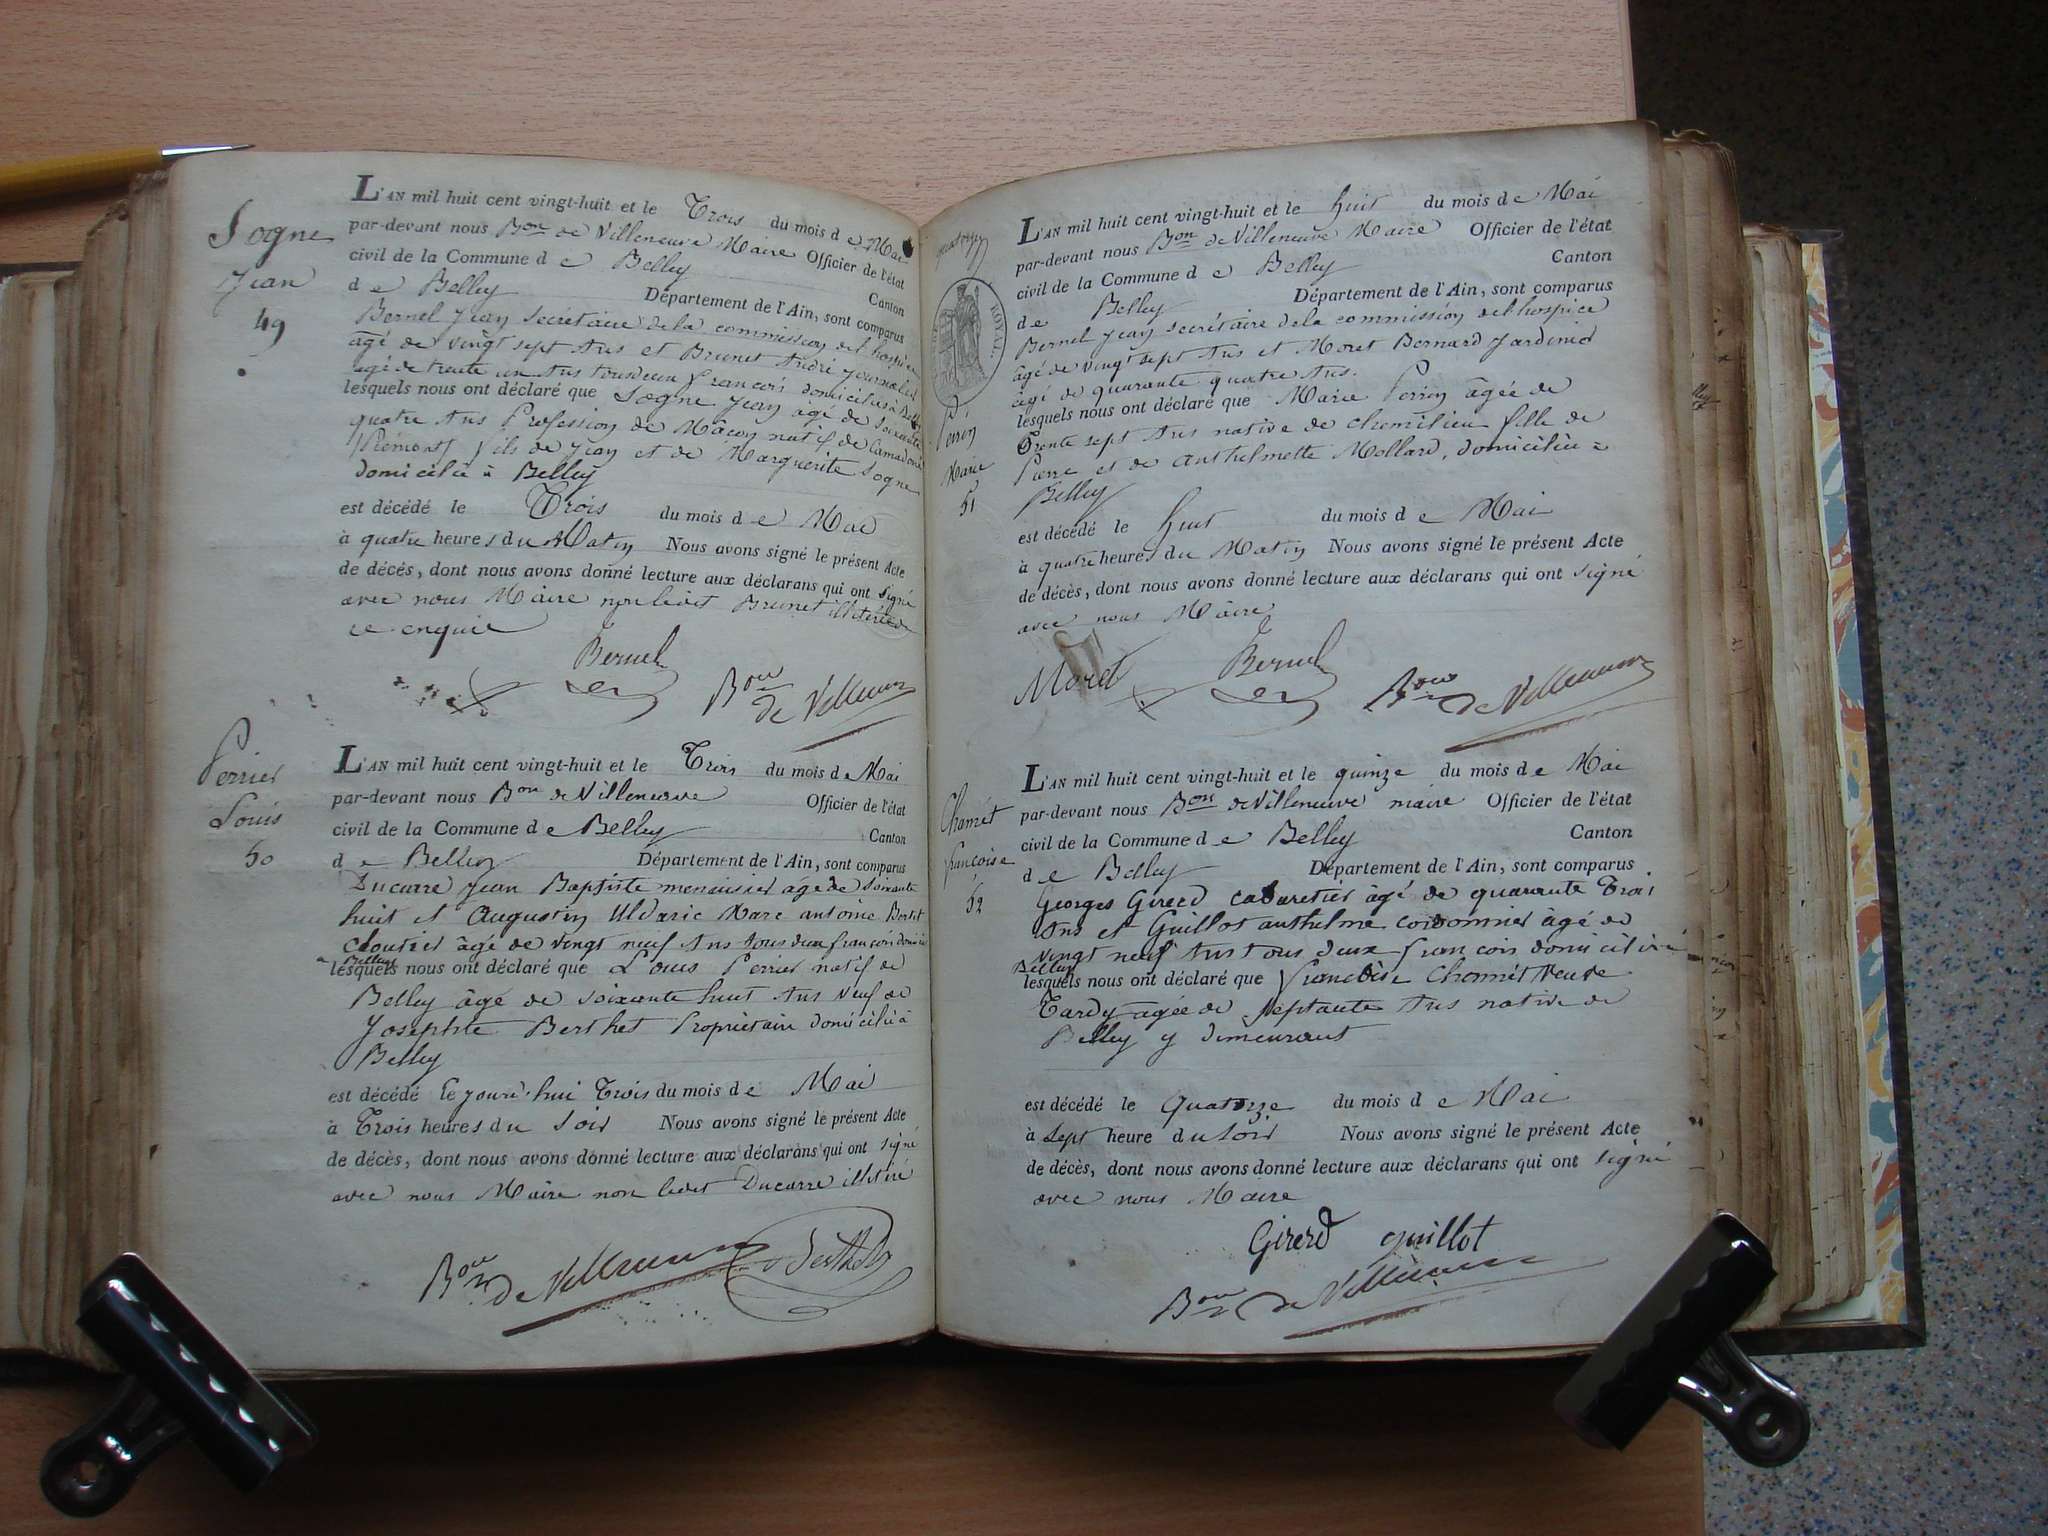 Sogne
Jean
49
L'AN mil huit cent vingt-huit et le Trois du mois de Mai
par-devant nous Bon de Villeneuve Maire Officier de l'état
civil de la Commune de Belley Canton
de Belley Département de l'Ain, sont comparus
Bernel Jean Secrétaire de la commission de l'hospice
âgé de vingt sept Ans et Brunet André journalier
âgé de trente un Ans tous deux francois domiciliés à Belley
lesquels nous ont déclaré que Sogne Jean âgé de soixante
quatre Ans Profession de Mâcon natif de
Piémont fils de Jean et de Marguerite Sogne
domicilié à Belley
est décédé le Trois du mois de Mai
à quatre heures du Matin Nous avons signé le présent Acte
de décés, dont nous avons donné lecture aux déclarans qui ont signé
avec nous Maire non ledit Brunet illitéré
ce enquis
Bernel
Bon de Villeneuve
Perrier
Louis
50
L'AN mil huit cent vingt-huit et le Trois du mois de Mai
par-devant nous Bon de Villeneuve Officier de l'état
civil de la Commune de Belley Canton
de Belley Département de l'Ain, sont comparus
Ducarre Jean Baptiste menuisier âgé de soixante
huit et Augustin Uldaric Marc antoine Bertet
cloutier âgé de vingt neuf Ans tous deux francois
à Belley
lesquels nous ont déclaré que Louis Perrier natif de
Belley âgé de soixante huit Ans veuf de
Josephte Berthet Propriétaire domicilié à
Belley
est décédé le jourd'hui Trois du mois de Mai
à Trois heures du soir Nous avons signé le présent Acte
de décès, dont nous avons donné lecture aux déclarans qui ont signé
avec nous Maire non ledit Ducarre illitéré
Bon de Villeneuve
ROYAL
Perrin
Marie
51
L'AN mil huit cent vingt-huit et le huit du mois de Mai
par-devant nous Bon de Villeneuve Maire Officier de l'état
civil de la Commune de Belley Canton
de Belley Département de l'Ain, sont comparus
Bernel Jean secrétaire de la commission de l'hospice
âgé de vingt sept Ans et Moret Bernard Jardinier
âgé de quarante quatre Ans.
lesquels nous ont déclaré que Marie Perrin âgée de
Trente sept Ans native de chemilieu fille de
Pierre et de Anthelmette Mollard, domiciliée à
Belley
est décédé le huit du mois de Mai
à quatre heures du Matin Nous avons signé le présent Acte
de décès, dont nous avons donné lecture aux déclarans qui ont signé
avec nous Maire
Moret Bernel Bon de Villeneuve
Chamét
françoise
52
L'AN mil huit cent vingt-huit et le quinze du mois de Mai
par-devant nous Bon de Villeneuve maire Officier de l'état
civil de la Commune de Belley Canton
de Belley Département de l'Ain, sont comparus
Georges Girerd cabaretier âgé de quarante Trois
Ans et Guillot anthelme cordonnier âgé de
vingt neuf Ans tous deux francois domicilié à
Belley
lesquels nous ont déclaré que francoise Chamét veuve
Tardy âgée de septante Ans native de
Belley y demeurant
est décédé le Quatorze du mois de Mai
à sept heure du soir Nous avons signé le présent Acte
de décès, dont nous avons donné lecture aux déclarans qui ont signé
avec nous Maire
Girerd guillot
Bon de Villeneuve